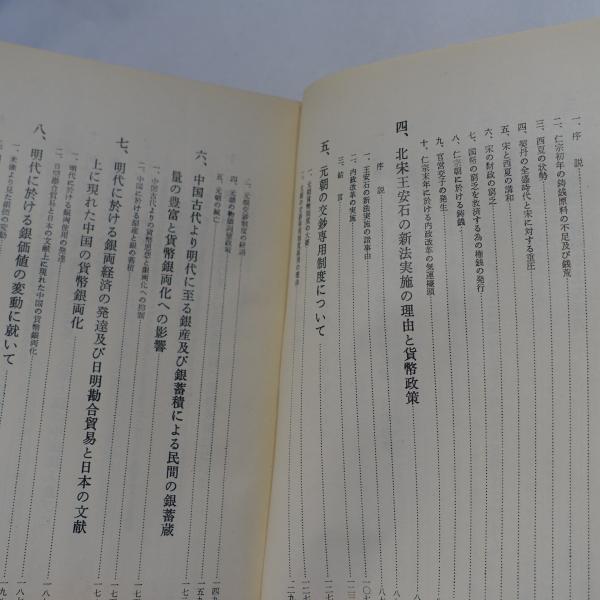 一、序説
二、仁宗初年の鋳銭原料の不足及び銭荒
三、西夏の状勢
四、契丹の全盛時代と宋に対する重圧
五、宋と西夏の講和
六、宋の財政の窮乏
七、国帑の窮乏を救済する為の権銭の発行
八、仁宗朝に於ける鋳銭
九、官営交子の発生
十、仁宗末年に於ける内政改革の気運擡頭
四、北宋王安石の新法実施の理由と貨幣政策
一、序説
一、王安石の新法実施の諸事由
二、内政改革の実施
三、結言
五、元朝の交鈔専用制度について
五、元朝の滅亡
六、中国古代より明代に至る銀産及び銀蓄積による民間の銀蓄蔵
量の豊富と貨幣銀両化への影響
一、中国古代よりの貨幣思想と銀両化への抑制
二、中国に於ける銀産と銀の蓄積
七、明代に於ける銀両経済の発達及び日明勘合貿易と日本の文献
上に現れた中国の貨幣銀両化
一、明代に於ける銀両使用の発達
二、日明勘合貿易と日本の文献上に現れた中国の貨幣銀両化
八、明代に於ける銀価値の変動に就いて
一、米価より見た銀価の変動